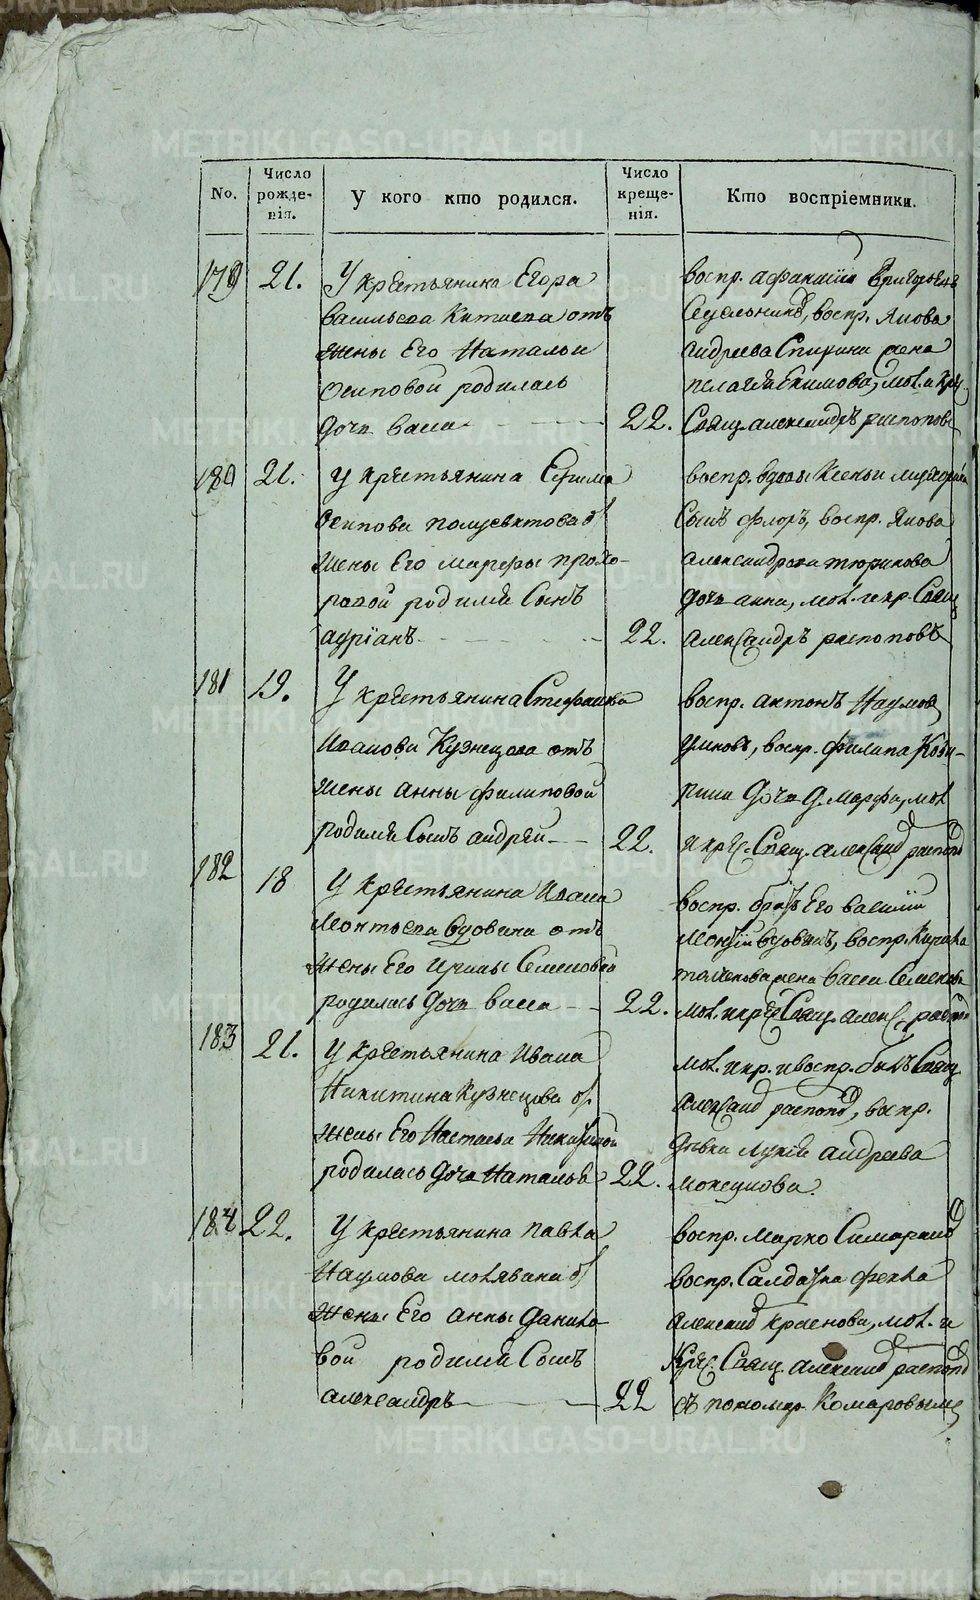 METRIKI.GASO-URAL.RU
No.
Число рожде-нія.
У кого кто родился.
Число креще-нія.
Кто воспріемники.
179 21. У крестьянина Егора
васильева Китаева отъ
жены Его Натальи
Осиповой родилась
дочь васса 22.
воспр. афанасій Григорьевъ
воспр. Якова
андреева Спирина жена
пелагея Екимова, мол. и кре.
Свящ. александръ распоповъ
180 21. У крестьянина Ефима
Осипова полуевктова о
жены Его марфы прохо-
ровой родился Сынъ
адріанъ 22.
воспр. вдовы Ксеньи
Сынъ флоръ, воспр. Якова
александрова тюрикова
дочь анна, мол. и кр. Свящ
александръ распоповъ
181 19. У крестьянина Стефана
Иванова Кузнецова отъ
жены анны филиповой
родился Сынъ андрей 22.
воспр. антонъ Наумов
воспр. филипа
дочь д. марфа, мол
и кре. Свящ. александ распопо
182 18 У крестьянина Ивана
Леонтьева вдовина отъ
жены Его Ирины Семеновой
родилась дочь васса 22.
воспр. братъ Его василій
Леонтій вдовинъ, воспр. Кирила
жена васса Семенова
мол. и кре Свящ. алекс. распо
183 21. У крестьянина Ивана
Никитина Кузнецова о
жены Его Настасьи Никитиной
родилась дочь Наталья 22.
мол. и кр. и воспр. былъ Свящ.
александ распопо, воспр.
девка андреева
184 22. У крестьянина павла
Наумова о
жены Его анны данило-
вой родился Сынъ
александръ 22
воспр. марко
воспр. Салдатка фекла
александ краснова, мол. и
Кре. Свящ. александ распопо
съ пономар. Комаровымъ